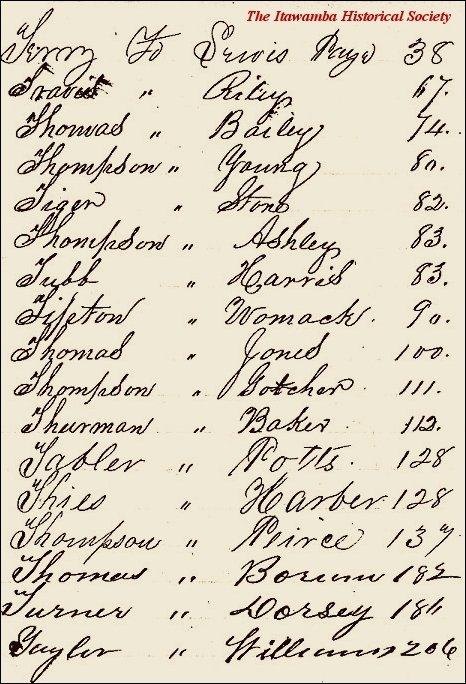 The Itawamba Historical Society
Terry To Lewis Page 38
Travis " Riley 67.
Thomas " Bailey 74.
Thompson " Young 80.
Tiger " Stone 82.
Thompson " Ashley 83.
Tubb " Harris 83.
Tipton " Womack. 90.
Thomas " Jones 100.
Thompson " Gotcher. 111.
Thurman " Baker 112.
Tabler " Potts. 128
Thies " Harber 128
Thompson " Peirce 137
Thomas " Borum 182
Turner " Dorsey
Taylor " Williams 206